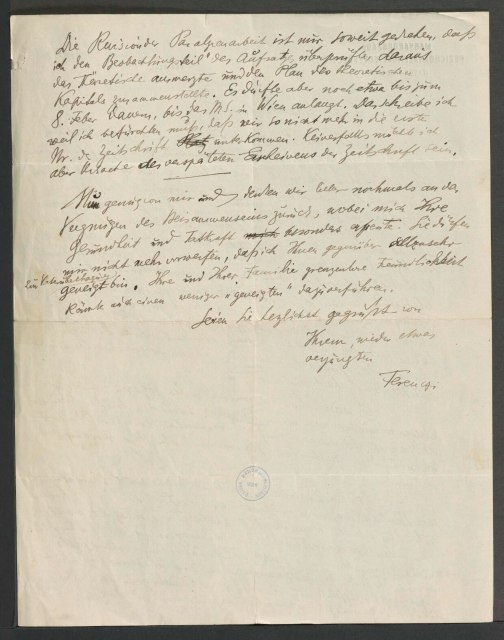 Die Revision der Paralysenarbeit ist nur soweit gediehen, daß
ich den Beobachtungsteil des Aufsatzes überprüfte, daraus
das Theoretische ausmerzte und den Plan des theoretischen
Kapitels zusammenstellte. Es dürfte aber noch etwa bis zum
8. Feber dauern, bis das MS. in Wien anlangt. Das schreibe ich
weil ich befürchten muß, daß wir so nicht mehr in die erste
Nr. der Zeitschrift unterkommen. Keinesfalls möcht ich
aber Ursache des verspäteten Erscheinens der Zeitschrift sein.
genug von mir und denken wir lieber nochmals an das
Vergnügen des Beisammenseins zurück, wobei mich Ihre
Gesundheit und Tatkraft besonders freute. Sie dürfen
mir nicht mehr vorwerfen, daß ich Ihnen gegenüber allzusehr
geneigt bin. Ihre und Ihrer Familie grenzenlose Freundlichkeit
könnte auch einen weniger „geneigten" dazu verführen.
Seien Sie herzlichst gegrüßt von
Ihrem, wieder etwas
verjüngten
Ferenczi